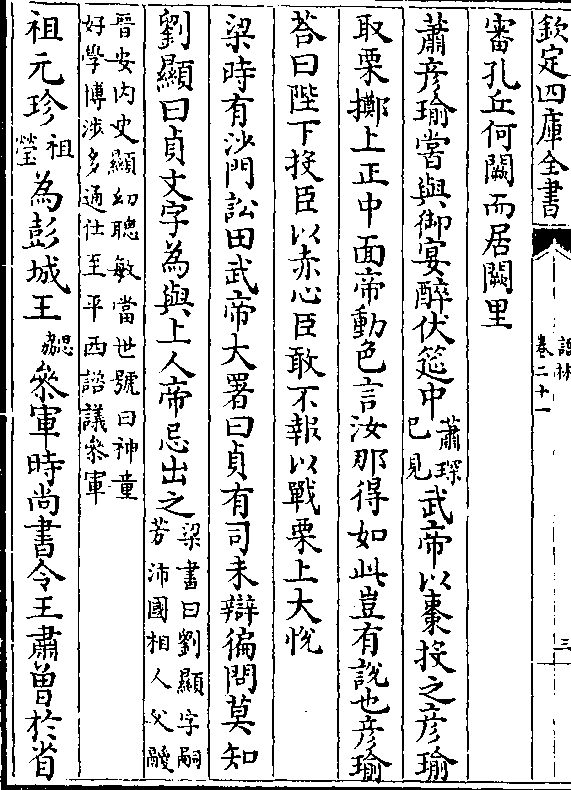 欽定四庫全書
語林
卷二十一
三
審孔丘何闕而居闕里
蕭彥瑜嘗與御宴醉伏筵中
蕭琛
已見
武帝以棗投之彥瑜
取栗擲上正中面帝動色言汝那得如此豈有說也彥瑜
荅曰陛下投臣以赤心臣敢不報以戰栗上大悅
梁時有沙門訟田武帝大署曰貞有司未辯徧問莫知
劉顯曰貞文字為與上人帝忌出之
梁書曰劉顯字嗣
芳沛國相人父鬷
晉安內史顯幼聰敏當世號曰神童
好學博涉多通仕至平西諮議叅軍
祖元珍
祖
瑩
為彭城王
勰
叅軍時尚書令王肅曾於省